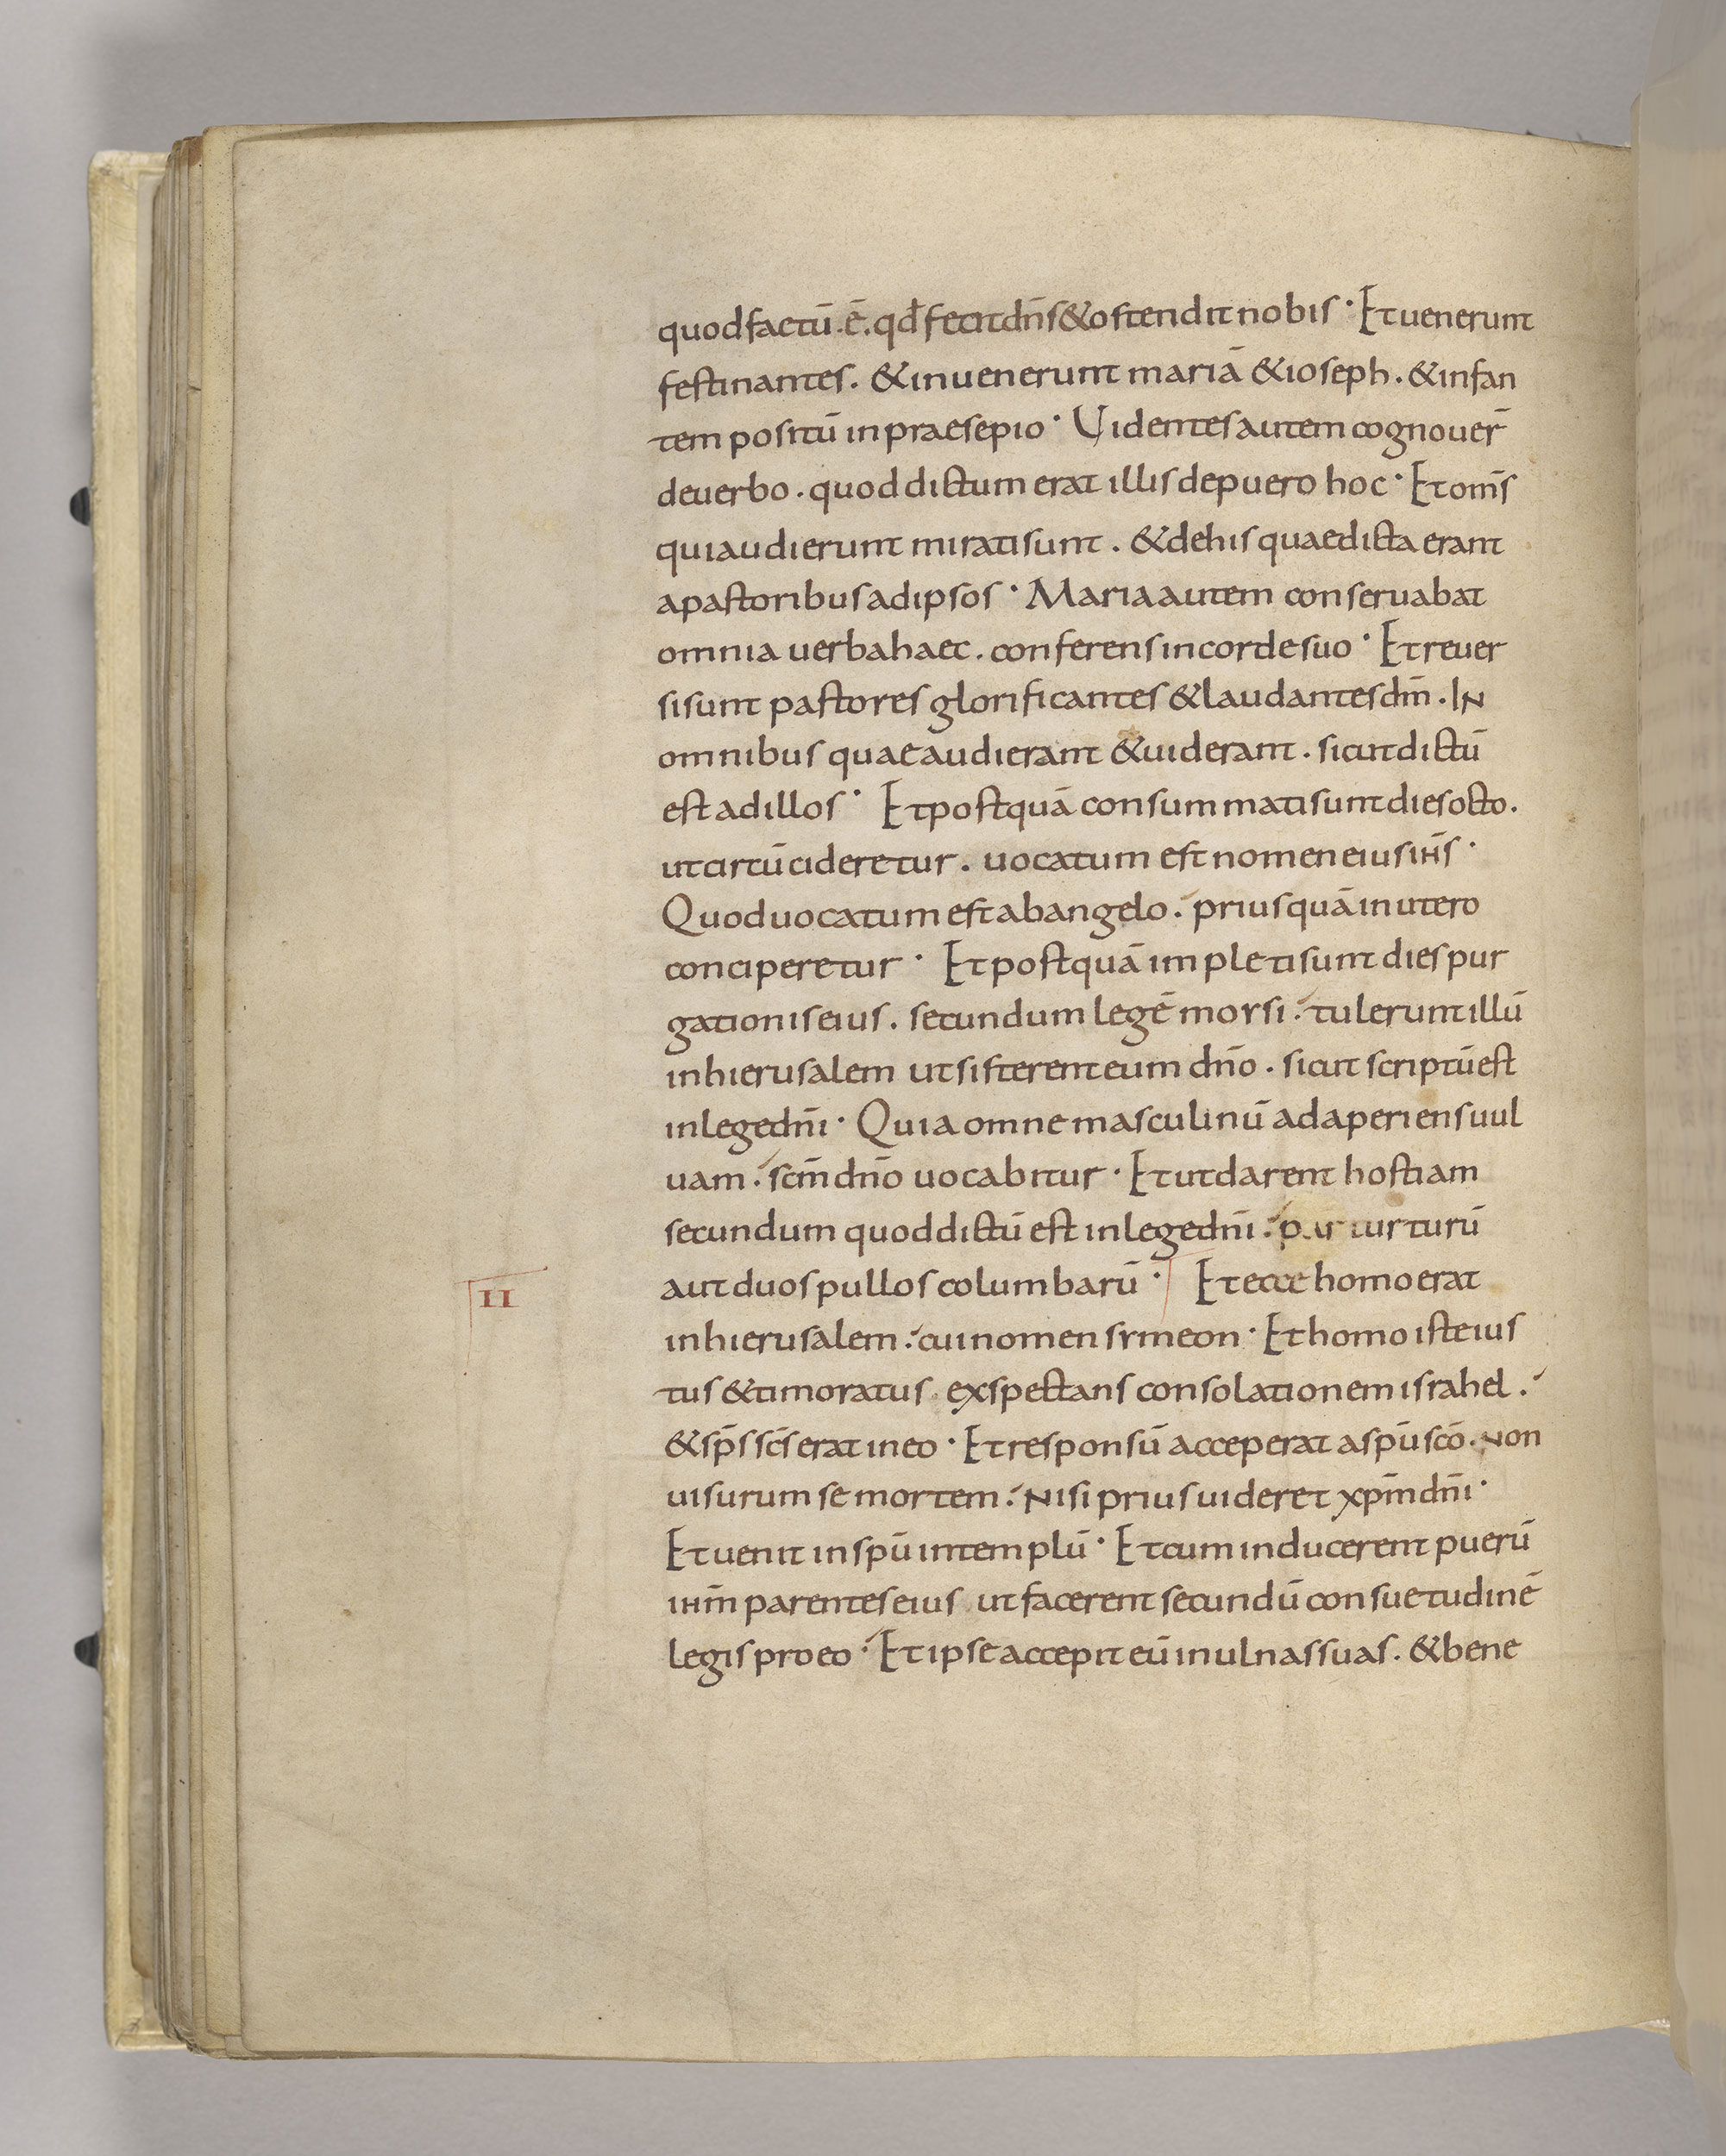 quod factū .ē. qd̄ fecit dn̄s & ostendit nobis · Et uenerunt
festinantes . & inuenerunt mariā & ioseph . & infan
tem positū in praesepio · Uidentes autem cognouer̄
deuerbo . quod dictum erat illis depuero hoc · Et om̄s
qui audierunt mirati sunt . & dehis quae dicta erant
a pastoribus ad ipsos · Maria autem conseruabat
omnia uerba haec . conferens in corde suo · Et reuer
si sunt pastores glorificantes & laudantes dm̄ . IN
omnibus quae audierant & uiderant . sicut dictū
est ad illos · Et postquā consummati sunt dies octo .
ut circūcideretur . uocatum est nomen eius ih̄s ·
Quod uocatum est ab angelo . priusquā in utero
conciperetur · Et postquā impleti sunt dies pur
gationis eius . secundum legē moysi . tulerunt illū
in hierusalem ut sisterent eum dn̄o . sicut scriptū est
in lege dn̄i · Quia omne masculinū adaperiens uul
uam . sc̄m dn̄o uocabitur · Et ut darent hostiam
secundum quod dictū est in lege dn̄i . par turturū
aut duos pullos columbarū · Et ecce homo erat
II
in hierusalem . cui nomen symeon · Et homo iste ius
tus & timoratus exspectans consolationem israhel .
& sp̄s sc̄s erat in eo · Et responsū acceperat a spū sc̄o . Non
uisurum se mortem . Nisi prius uideret xp̄m dn̄i ·
Et uenit in spū in templū · Et cum inducerent puerū
ih̄m parentes eius ut facerent secundū consuetudinē
legis pro eo · Et ipse accepit eū in ulnas suas . & bene